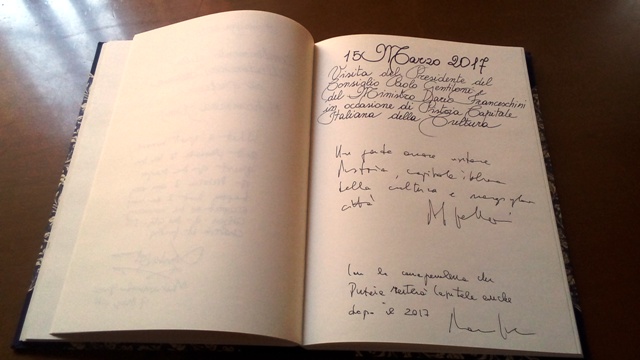 15 Marzo 2017
Visita del Presidente del
Consiglio Paolo Gentiloni e
del Ministro Dario Franceschini
in occasione di Pistoia Capitale
Italiana della Cultura
Un grande onore visitare
Pistoia, capitale italiana
della cultura e
città
Con la consapevolezza che
Pistoia resterà Capitale anche
dopo il 2017